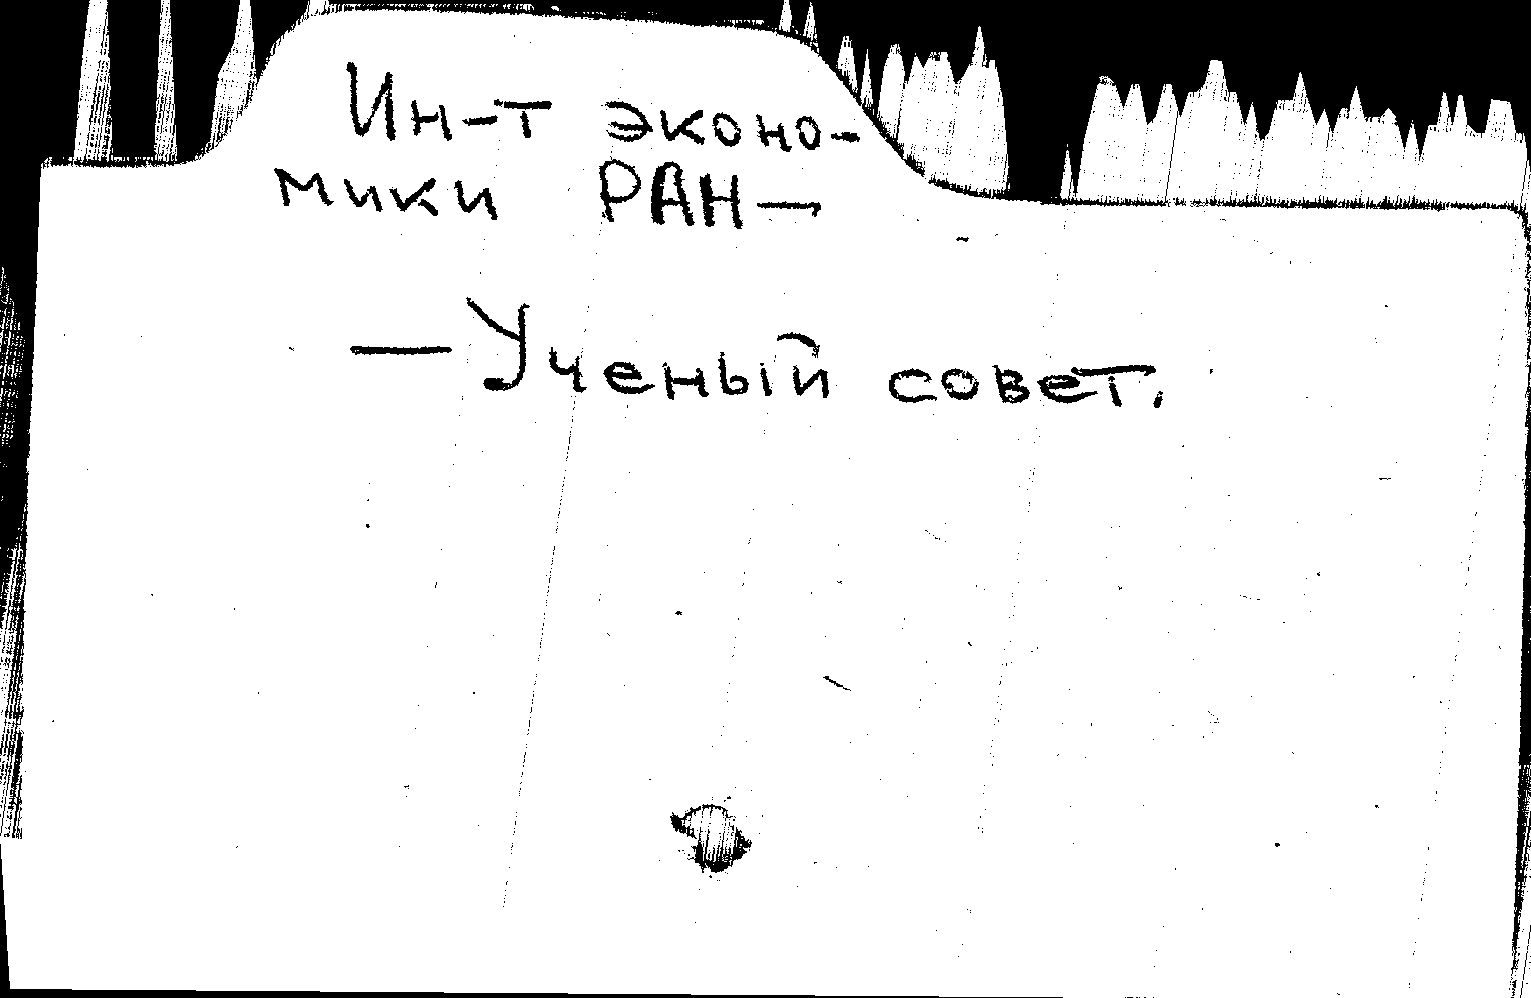 Ин-т эконо-
мики РАН —
— Ученый совет.